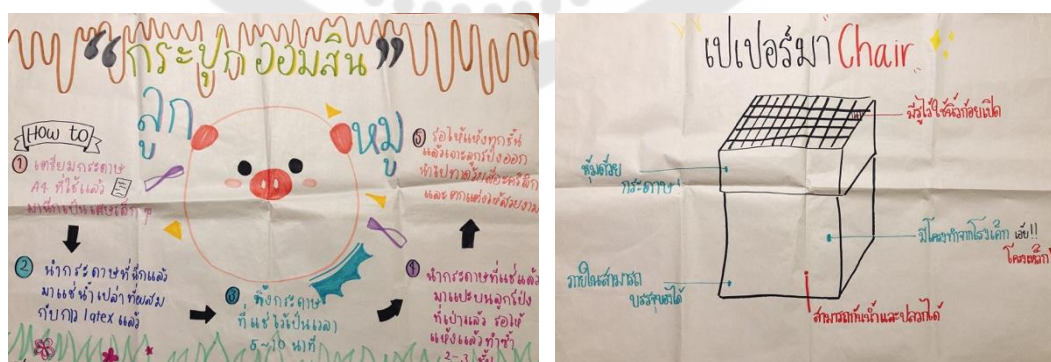 “กระปุกออมสิน”
ลูก
หมู
How to
① เตรียมกระดาษ
A4 ที่ใช้แล้ว
มาฉีกเป็นเศษเล็ก ๆ
② นำกระดาษที่ฉีกแล้ว
มาแช่น้ำเปล่าที่ผสม
กับกาว latex แล้ว
③ ทิ้งกระดาษ
ที่แช่ไว้เป็นเวลา
5-10 นาที
④ นำกระดาษที่แช่แล้ว
มาแปะบนลูกโป่ง
ที่เป่าแล้ว รอให้
แห้งแล้วทำซ้ำ
2-3 ชั้น
⑤ รอให้แห้งทุกชั้น
แล้วเจาะลูกโป่งออก
นำไปทาด้วยสีอะคริลิก
และตกแต่งให้สวยงาม
เปเปอร์มา Chair
มีรูไว้ใช้นิ้วก้อยเปิด
หุ้มด้วย
กระดาษ!
มีโครงทำจากโรงเด็ก เอ้ย!!
โครงเหล็ก!
ภายในสามารถ
บรรจุของได้
สามารถกันน้ำและปลวกได้